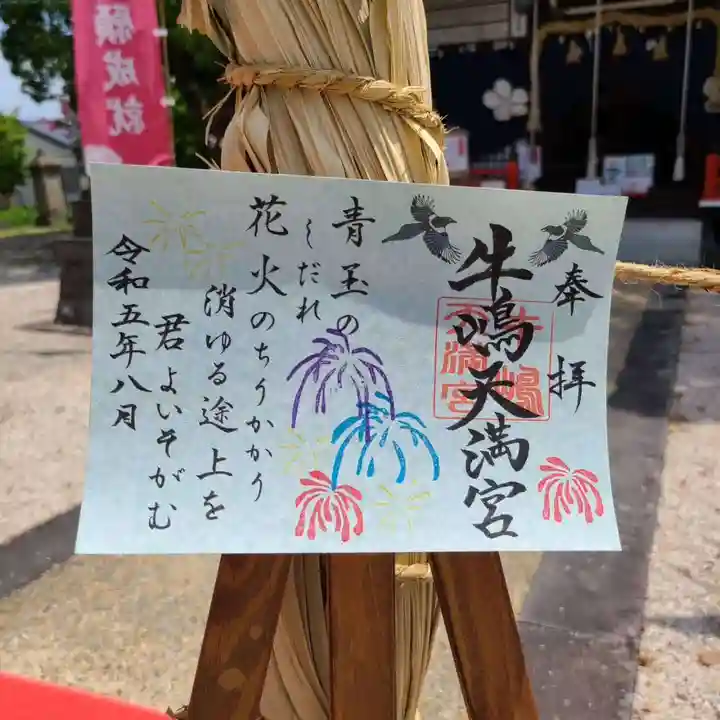 願成就
奉拝
牛嶋天満宮
牛嶋
天満宮
青玉の
しだれ
花火のちりかかり
消ゆる途上を
君よいそがむ
令和五年八月